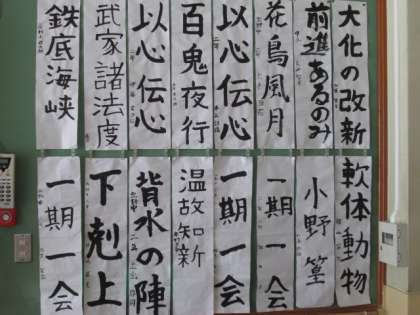 大化の改新
前進あるのみ
花鳥風月
以心伝心
百鬼夜行
以心伝心
武家諸法度
鉄底海峡
軟体動物
小野篁
一期一会
一期一会
温故知新
背水の陣
下剋上
一期一会